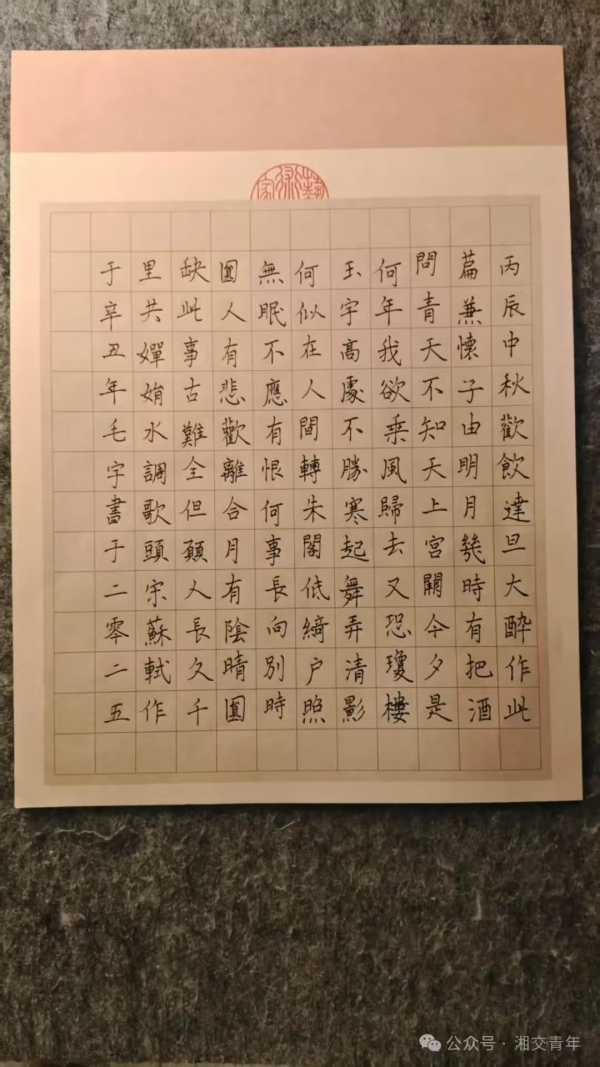 丙辰中秋歡飲達旦大醉作此
篇兼懷子由明月幾時有把酒
問青天不知天上宮闕今夕是
何年我欲乘風歸去又恐瓊樓
玉宇高處不勝寒起舞弄清影
何似在人間轉朱閣低綺户照
無眠不應有恨何事長向別時
圓人有悲歡離合月有陰晴圓
缺此事古難全但願人長久千
里共嬋娟水調歌頭宋蘇軾作
于辛丑年毛宇書于二零二五
公众号·湘交青年